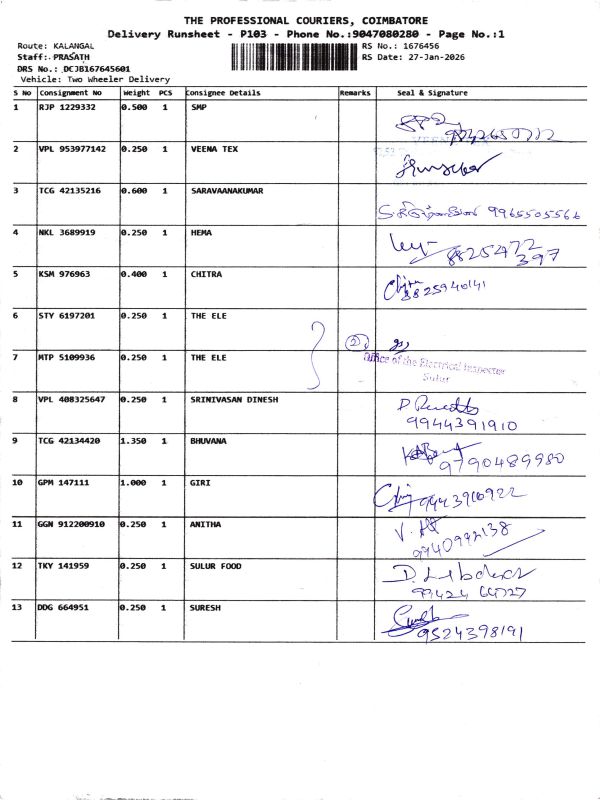 THE PROFESSIONAL COURIERS, COIMBATORE
Delivery Runsheet - P103 - Phone No.:9047080280 - Page No.:1
Route: KALANGAL
RS No.: 1676456
Staff: PRASATH
RS Date: 27-Jan-2026
DRS No.: DCJB167645601
Vehicle: Two Wheeler Delivery
S No Consignment No Weight PCS Consignee Details Remarks Seal & Signature
1 RJP 1229332 0.500 1 SMP
2 VPL 953977142 0.250 1 VEENA TEX
3 TCG 42135216 0.600 1 SARAVAANAKUMAR 9965505566
4 NKL 3689919 0.250 1 HEMA 8825472
397
5 KSM 976963 0.400 1 CHITRA
8825940141
6 STY 6197201 0.250 1 THE ELE
2
7 MTP 5109936 0.250 1 THE ELE Office of the Electrical Inspector
Sulur
8 VPL 408325647 0.250 1 SRINIVASAN DINESH
9944391910
9 TCG 42134420 1.350 1 BHUVANA 9790489980
10 GPM 147111 1.000 1 GIRI 9443910922
11 GGN 912200910 0.250 1 ANITHA
9940992138
12 TKY 141959 0.250 1 SULUR FOOD
99424 64727
13 DDG 664951 0.250 1 SURESH
9524398191